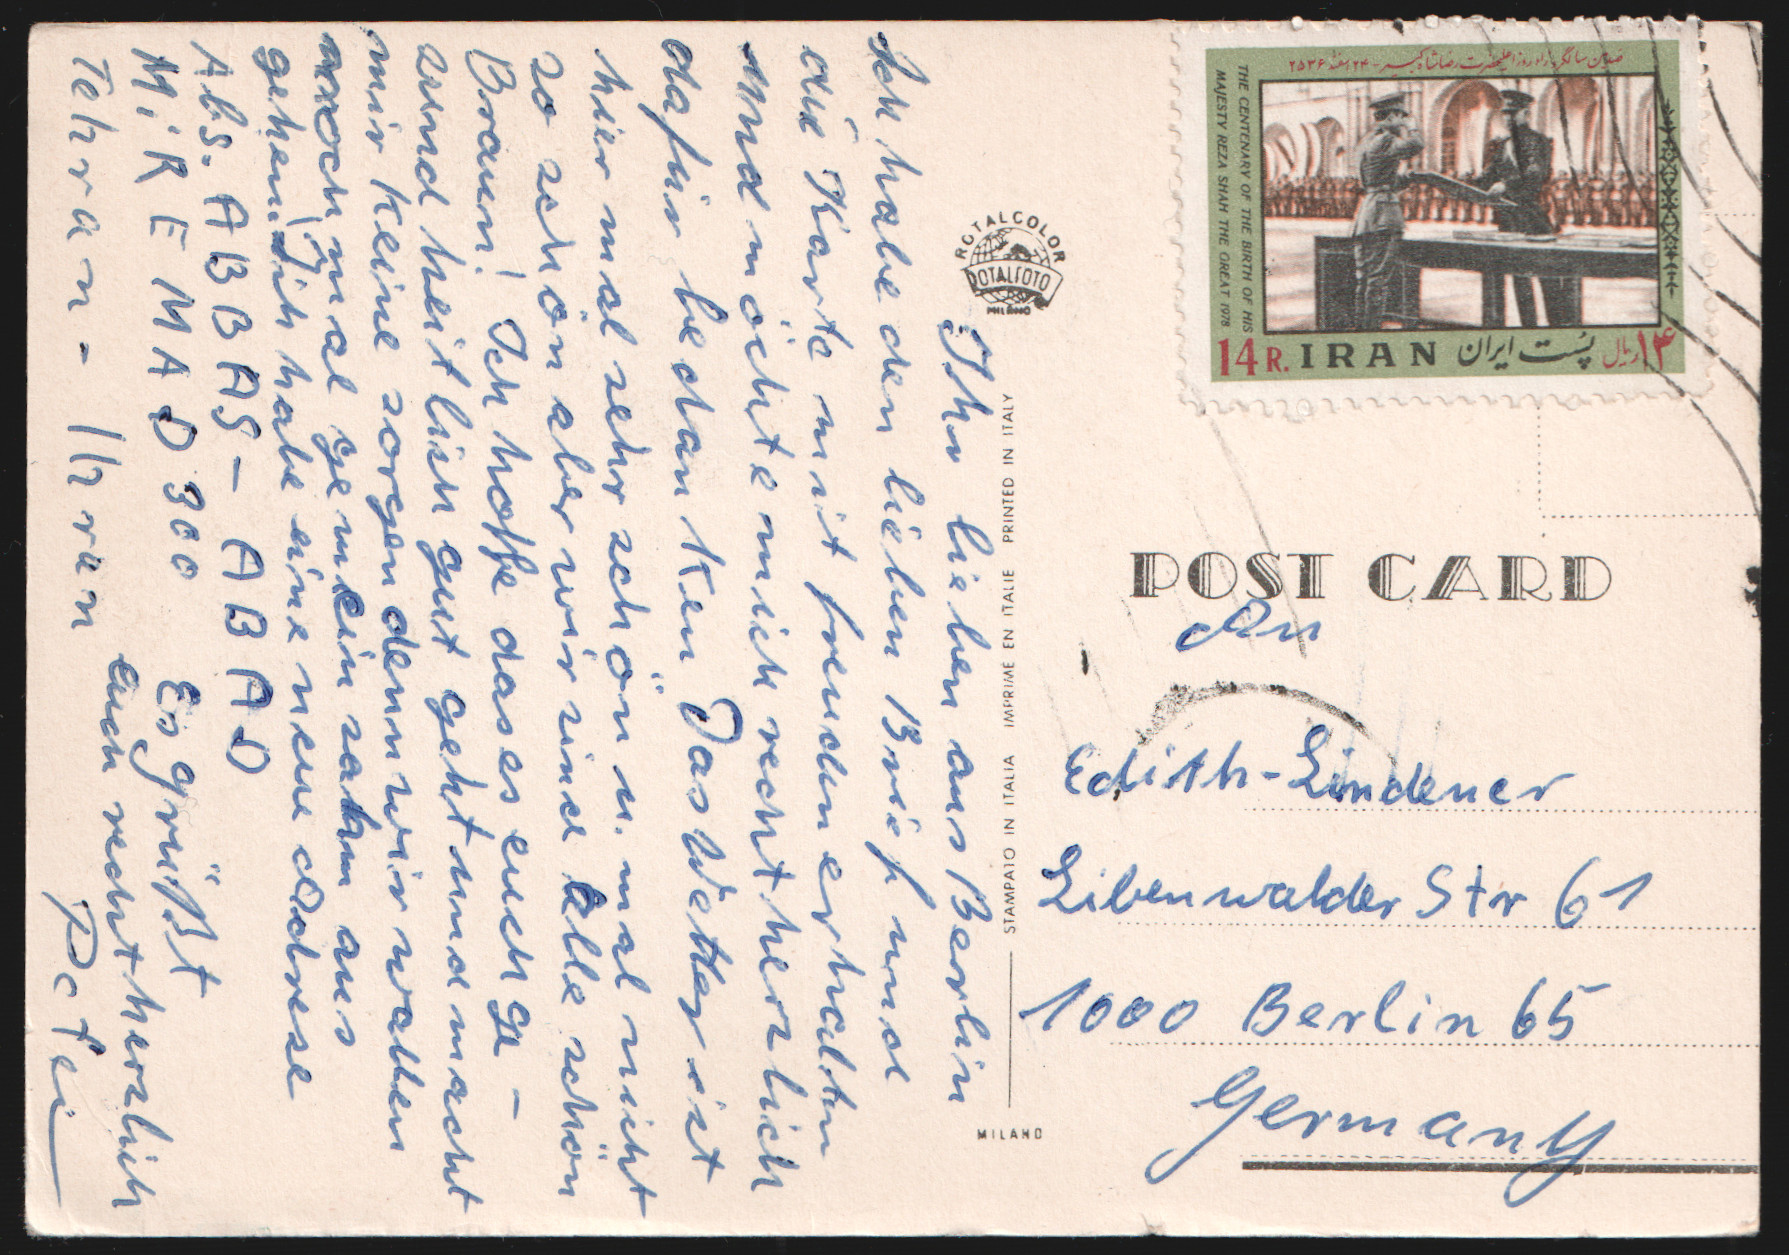 Ihr lieben aus Berlin
Ich habe den lieben Brief und
die Karte mit freuden erhalten
und möchte mich recht herzlich
dafür bedanken Das Wetter ist
hier mal sehr schön u. mal nicht
so schön aber wir sind alle schön
Braun! Ich hoffe das es euch ge-
sund heitlich gut geht und macht
mir keine sorgen denn wir wollen
noch mal gemeinsam aus
gehen! Ich habe eine neue Adrese
Abs. ABBAS - ABAD
MiREMAD 300
Tehran - Ihran
Es grüßt
euch recht herzlich
ROTALCOLOR
ROTALFOTO
MILANO
STAMPATO IN ITALIA IMPRIME EN ITALIE PRINTED IN ITALY
MILANO
THE CENTENARY OF THE BIRTH OF HIS
MAJESTY REZA SHAH THE GREAT 1978
14 R. IRAN پست ایران ۱۴ ریال
POST CARD
An
Edith-Lindener
Libenwalder Str 61
1000 Berlin 65
Germany